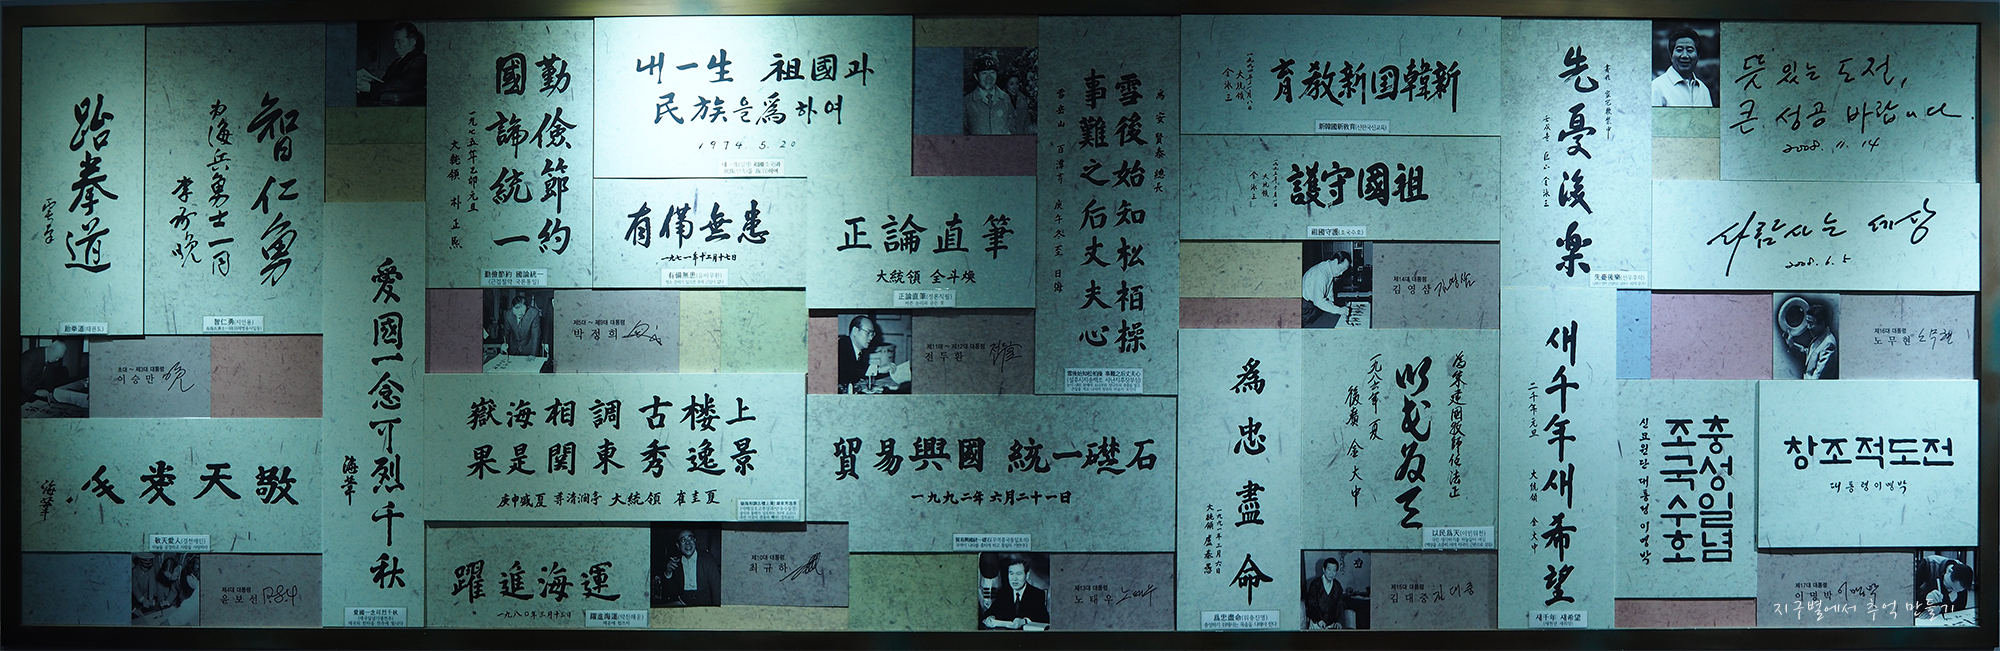 跆拳道
雲峯
跆拳道(태권도)
智仁勇
为海兵勇士一同
李承晩
智仁勇(지인용)
초대 ~ 제3대 대통령
이승만
敬天爱人
海葦
敬天愛人(경천애인)
제4대 대통령
윤보선
愛國一念可烈千秋
海葦
愛國一念可烈千秋
勤儉節約
國論統一
一九七五年乙卯元旦
大統領 朴正熙
勤儉節約 國論統一
(근검절약 국론통일)
내一生 祖國과
民族을 爲하여
1974. 5. 20
내 一生 祖國과
民族을 爲하여
有備無患
一九七一年十二月十七日
有備無患(유비무환)
제5대 ~ 제9대 대통령
박정희
嶽海相調古楼上
果是関東秀逸景
庚申盛夏 尋清澗亭 大統領 崔圭夏
躍進海運
一九八〇年三月十三日
躍進海運(약진해운)
제10대 대통령
최규하
正論直筆
大統領 全斗煥
正論直筆(정론직필)
제11대 ~ 제12대 대통령
전두환
為 安賢泰 總長
雪後始知松栢操
事難之后丈夫心
雪岳山 百潭寺 庚午冬至 日海
雪後始知松柏操 事難之后丈夫心
貿易興國 統一礎石
一九九二年 六月二十一日
貿易興國統一礎石(무역흥국통일초석)
제13대 대통령
노태우
爲忠盡命
一九九一年三月六日
大統領 盧泰愚
爲忠盡命(위충진명)
育敎新国韓新
大統領
金泳三
新韓國新敎育(신한국신교육)
護守國祖
大統領
金泳三
祖國守護(조국수호)
제14대 대통령
김영삼
先憂後楽
巨山 金泳三
先憂後樂(선우후락)
以民为天
一九八六年 夏
後廣 金大中
以民爲天(이민위천)
제15대 대통령
김대중
새千年 새希望
二千年元旦
大統領 金大中
새千年 새希望
뜻 있는 도전,
큰 성공 바랍니다
2008. 11. 14
사람사는 세상
2008. 6. 5
제16대 대통령
노무현
충성일념
조국수호
신묘원단 대통령 이명박
창조적도전
대통령이명박
제17대 대통령
이명박
지구별에서 추억 만들기